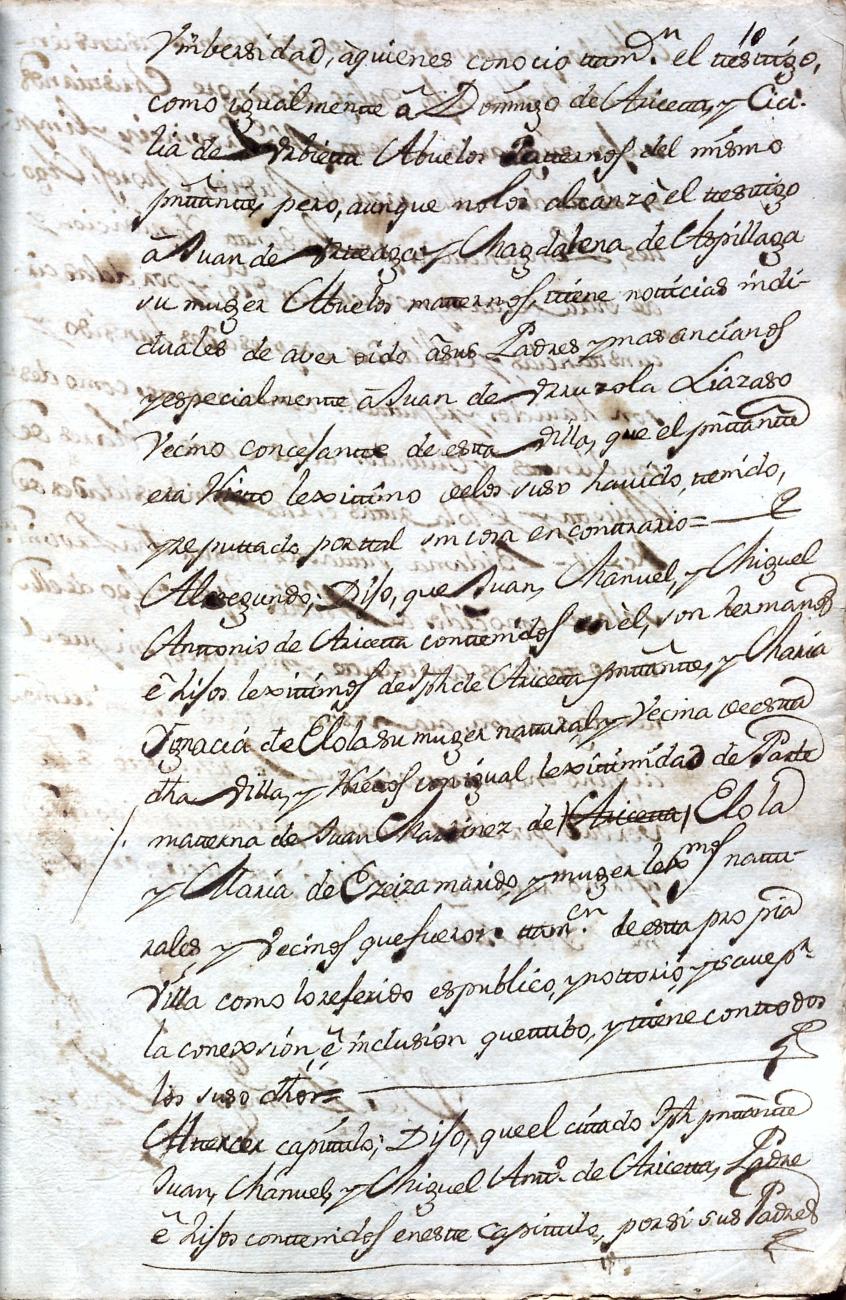 10
Vnibersidad, àquienes conocio ttamv.n el ttesttigo,
como igualmente â Domingo de Aricetta, y Cici-
lia de Vrbietta Abuelos Patternos del mismo
pnttante, pero, aunque nolos alcanzò el ttesttigo
â Juan de Artteaga y Magdalena de Aspillaga
su muger Abuelos matternos, ttiene notticias indi-
duales de aver oido âsus Padres y mas ancianos
yespecialmente â Juan de Vrruzola Liazaso
Vecino concesante de estta Villa, que el pnttante
era Hixo lexittimo delos suso havido, ttenido,
yreputtado porttal sin cosa en conttrario=
Al segundo; Dijo, que Juan, Manuel, y Miguel
Anttonio de Aricetta conttenidos en èl, son hermanos
ê hijos lexittimos de Jph de Aricetta pnttante, y Maria
Ygnacia de Elola su muger natturaly Vecina de estta
dha Villa, y Niettos con igual lexittimidad de Partte
matterna de Juan Marttinez de (Aricetta) Elola
y Maria de Ezeiza marido, y muger lexmos nattu-
rales y Vecinos que fueron ttamv.n de estta propia
Villa como lo referido es publico, y nottorio, y se save pr
la conexsión, ê inclusion que ttubo, y ttiene con ttodos
los suso dhos=
Al tterzer capittulo; Dijo, que el cittado Jph pnttante
Juan, Manuel, y Miguel Antto. de Aricetta, Padre
ê hijos conttenidos en estte capittulo, por si sus Padres